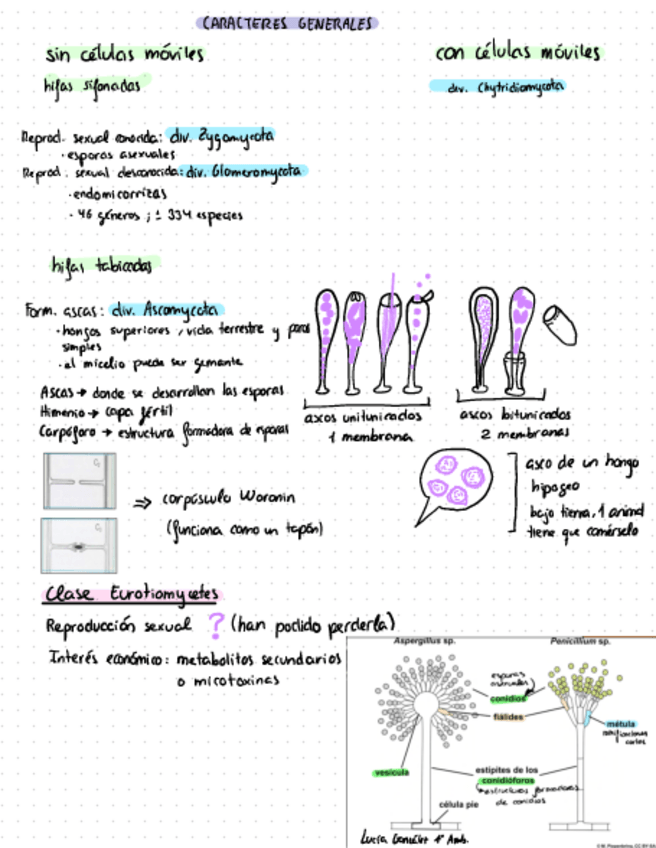 CARACTERES GENERALES
sin células móviles
con células móviles
hifas sifonadas
div. Chytridiomycota
Reprod. sexual conocida: div. Zygomycota
· esporas asexuales
Reprod. sexual desconocida: div. Glomeromycota
· endomicorrizas
· 46 géneros ; ± 334 especies
hifas tabicadas
Form. ascas: div. Ascomycota
· hongos superiores, vida terrestre y poros
simples
· el micelio puede ser gemante
Ascas → donde se desarrollan las esporas
Himenio → capa fértil
Carpóforo → estructura formadora de esporas
ascos unitunicados
1 membrana
ascos bitunicados
2 membranas
⇒ corpúsculo Woronin
(funciona como un tapón)
asco de un hongo
hipogeo
bajo tierra, 1 animal
tiene que comérselo
Clase Eurotiomycetes
Reproducción sexual ? (han podido perderla)
Interés económico: metabolitos secundarios
o micotoxinas
Aspergillus sp.
Penicillium sp.
esporas
asexuales
conidios
fiálides
métula
ramificaciones
cortas
vesícula
estípites de los
conidióforos
estructuras formadoras
de conidios
célula pie
Lucía González 4º Amb.